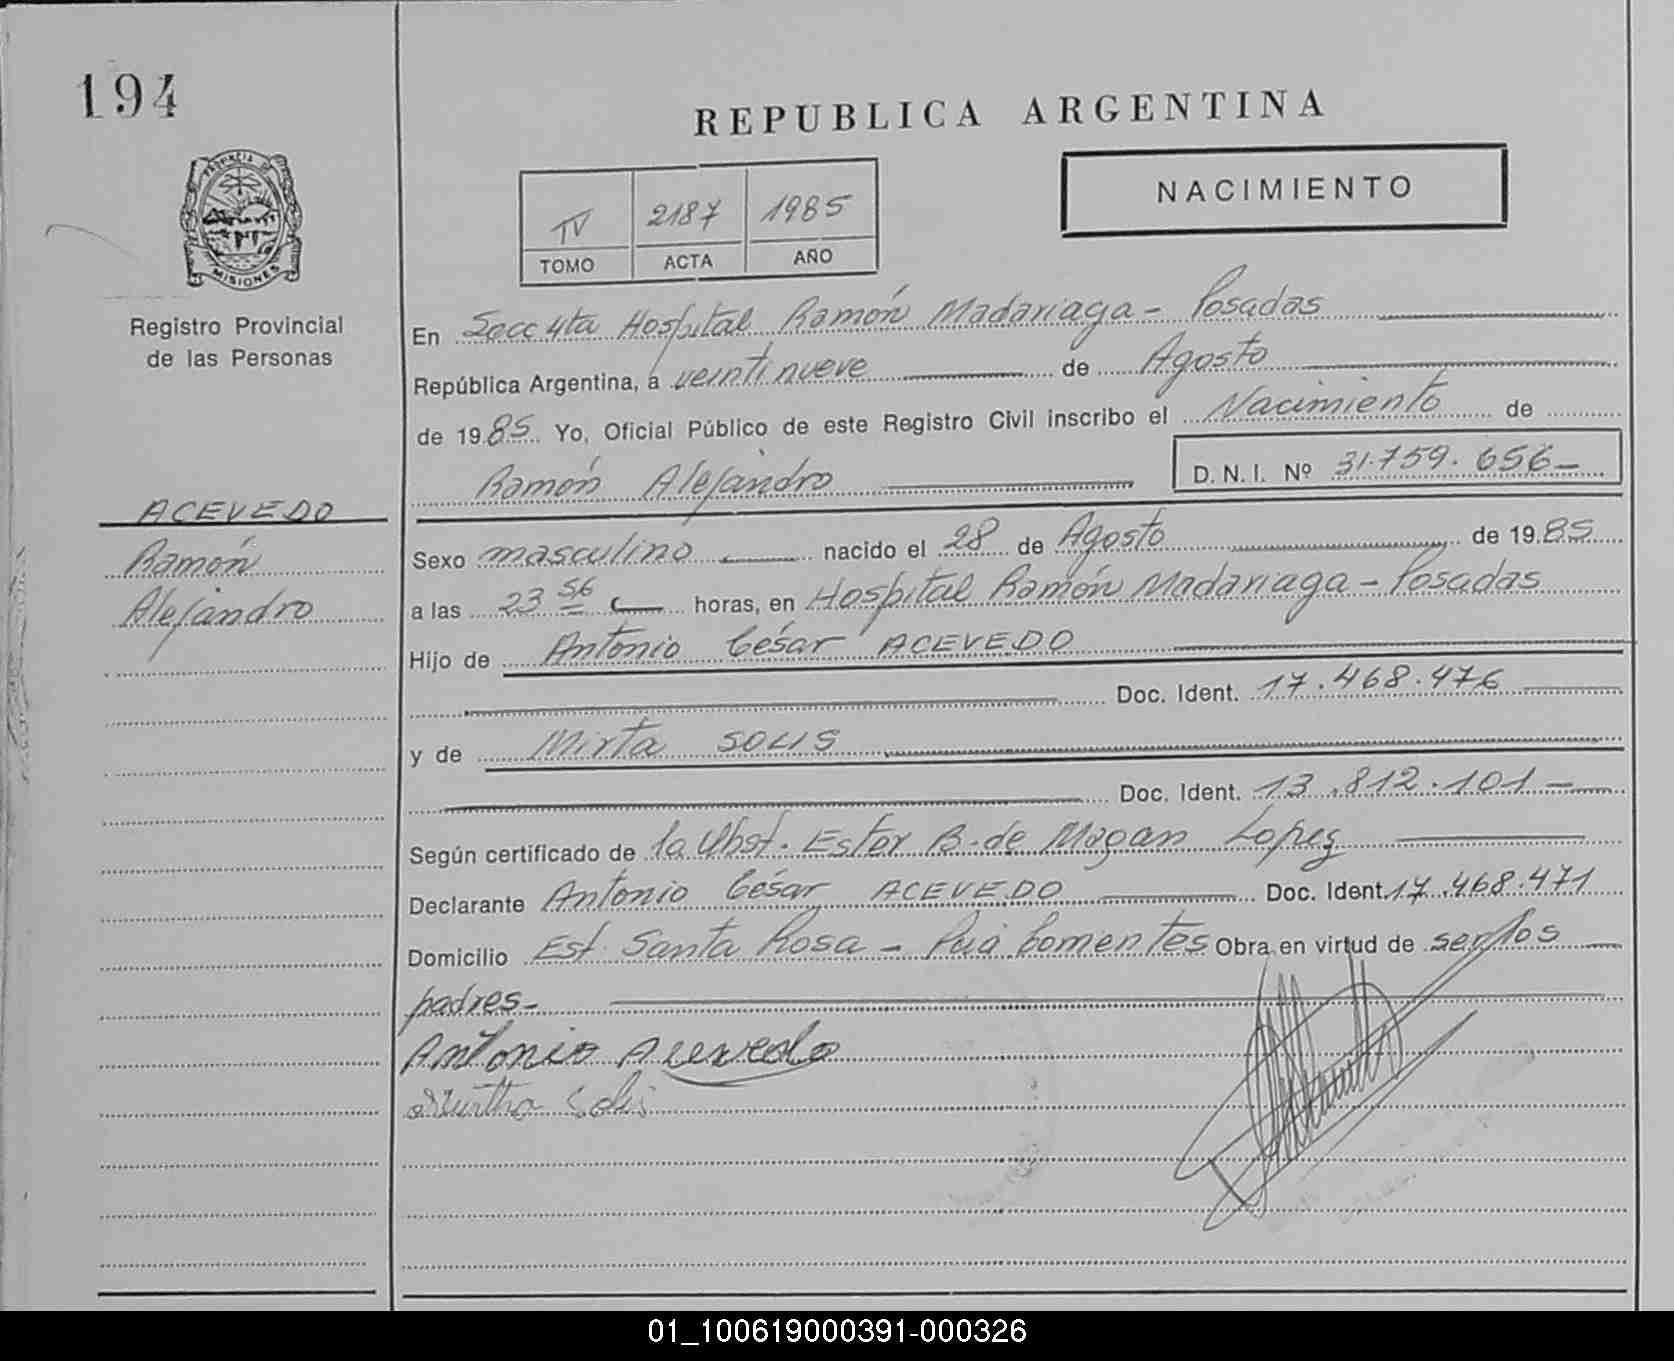 194
REPUBLICA ARGENTINA
PROVINCIA DE
MISIONES
IV 2187 1985
TOMO ACTA AÑO
NACIMIENTO
Registro Provincial
de las Personas
En Secc 4ta Hospital Ramón Madariaga - Posadas
República Argentina, a veintinueve de Agosto
de 1985 Yo, Oficial Público de este Registro Civil inscribo el Nacimiento de
Ramón Alejandro D. N. I. Nº 31.759.656-
ACEVEDO
Ramón
Alejandro
Sexo masculino nacido el 28 de Agosto de 1985
a las 23 56 horas, en Hospital Ramón Madariaga - Posadas
Hijo de Antonio César ACEVEDO
Doc. Ident. 17.468.476
y de Mirta SOLIS
Doc. Ident. 13.812.101-
Según certificado de la Obst. Ester B. de Mogan Lopez
Declarante Antonio César ACEVEDO Doc. Ident. 17.468.471
Domicilio Est. Santa Rosa - Obra en virtud de ser los
padres-
Antonio Acevedo
Solis
01_100619000391-000326